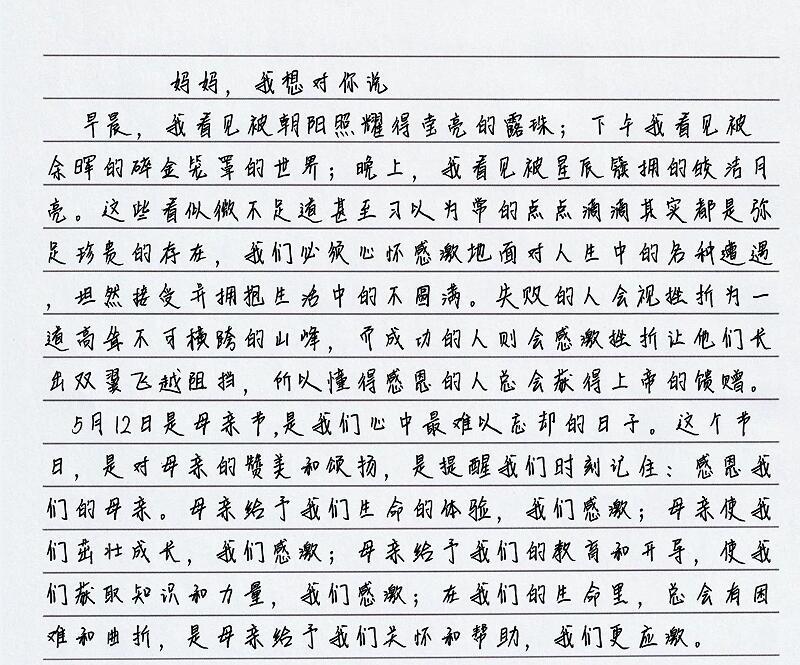 妈妈，我想对你说
早晨，我看见被朝阳照耀得莹亮的露珠；下午我看见被
余晖的碎金笼罩的世界；晚上，我看见被星辰簇拥的皎洁月
亮。这些看似微不足道甚至习以为常的点点滴滴其实都是弥
足珍贵的存在，我们必须心怀感激地面对人生中的各种遭遇
，坦然接受并拥抱生活中的不圆满。失败的人会视挫折为一
道高耸不可横跨的山峰，而成功的人则会感激挫折让他们长
出双翼飞越阻挡，所以懂得感恩的人总会获得上帝的馈赠。
5月12日是母亲节,是我们心中最难以忘却的日子。这个节
日，是对母亲的赞美和颂扬，是提醒我们时刻记住：感恩我
们的母亲。母亲给予我们生命的体验，我们感激；母亲使我
们茁壮成长，我们感激；母亲给予我们的教育和开导，使我
们获取知识和力量，我们感激；在我们的生命里，总会有困
难和曲折，是母亲给予我们关怀和帮助，我们更应激。